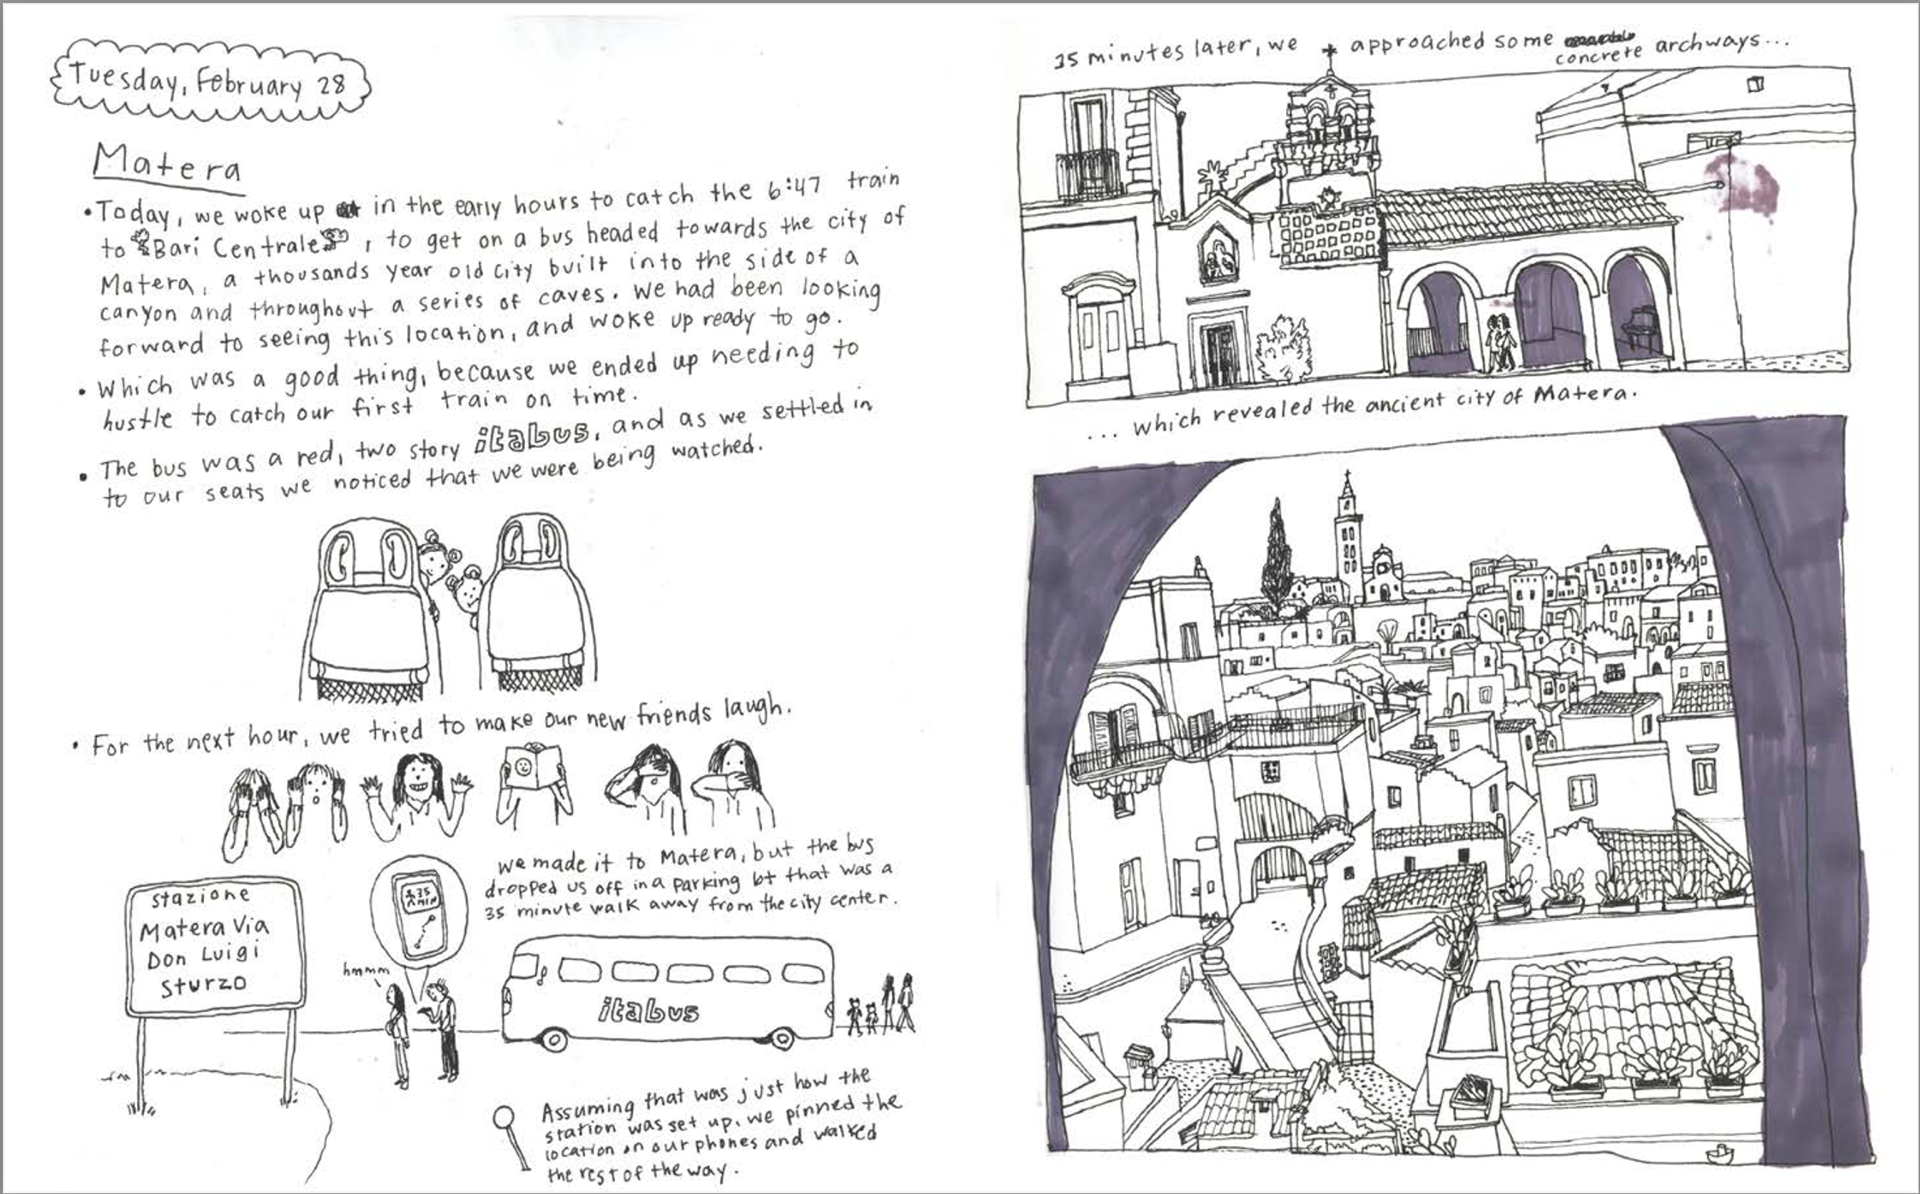 Tuesday, February 28
Matera
• Today, we woke up in the early hours to catch the 6:47 train
to Bari Centrale, to get on a bus headed towards the city of
Matera, a thousands year old city built into the side of a
canyon and throughout a series of caves. We had been looking
forward to seeing this location, and woke up ready to go.
• Which was a good thing, because we ended up needing to
hustle to catch our first train on time.
• The bus was a red, two story itabus, and as we settled in
to our seats we noticed that we were being watched.
• For the next hour, we tried to make our new friends laugh.
we made it to Matera, but the bus
dropped us off in a parking lot that was a
35 minute walk away from the city center.
stazione
Matera Via
Don Luigi
Sturzo
35
MIN
hmmm
itabus
Assuming that was just how the
station was set up, we pinned the
location on our phones and walked
the rest of the way.
35 minutes later, we approached some concrete archways...
... which revealed the ancient city of Matera.